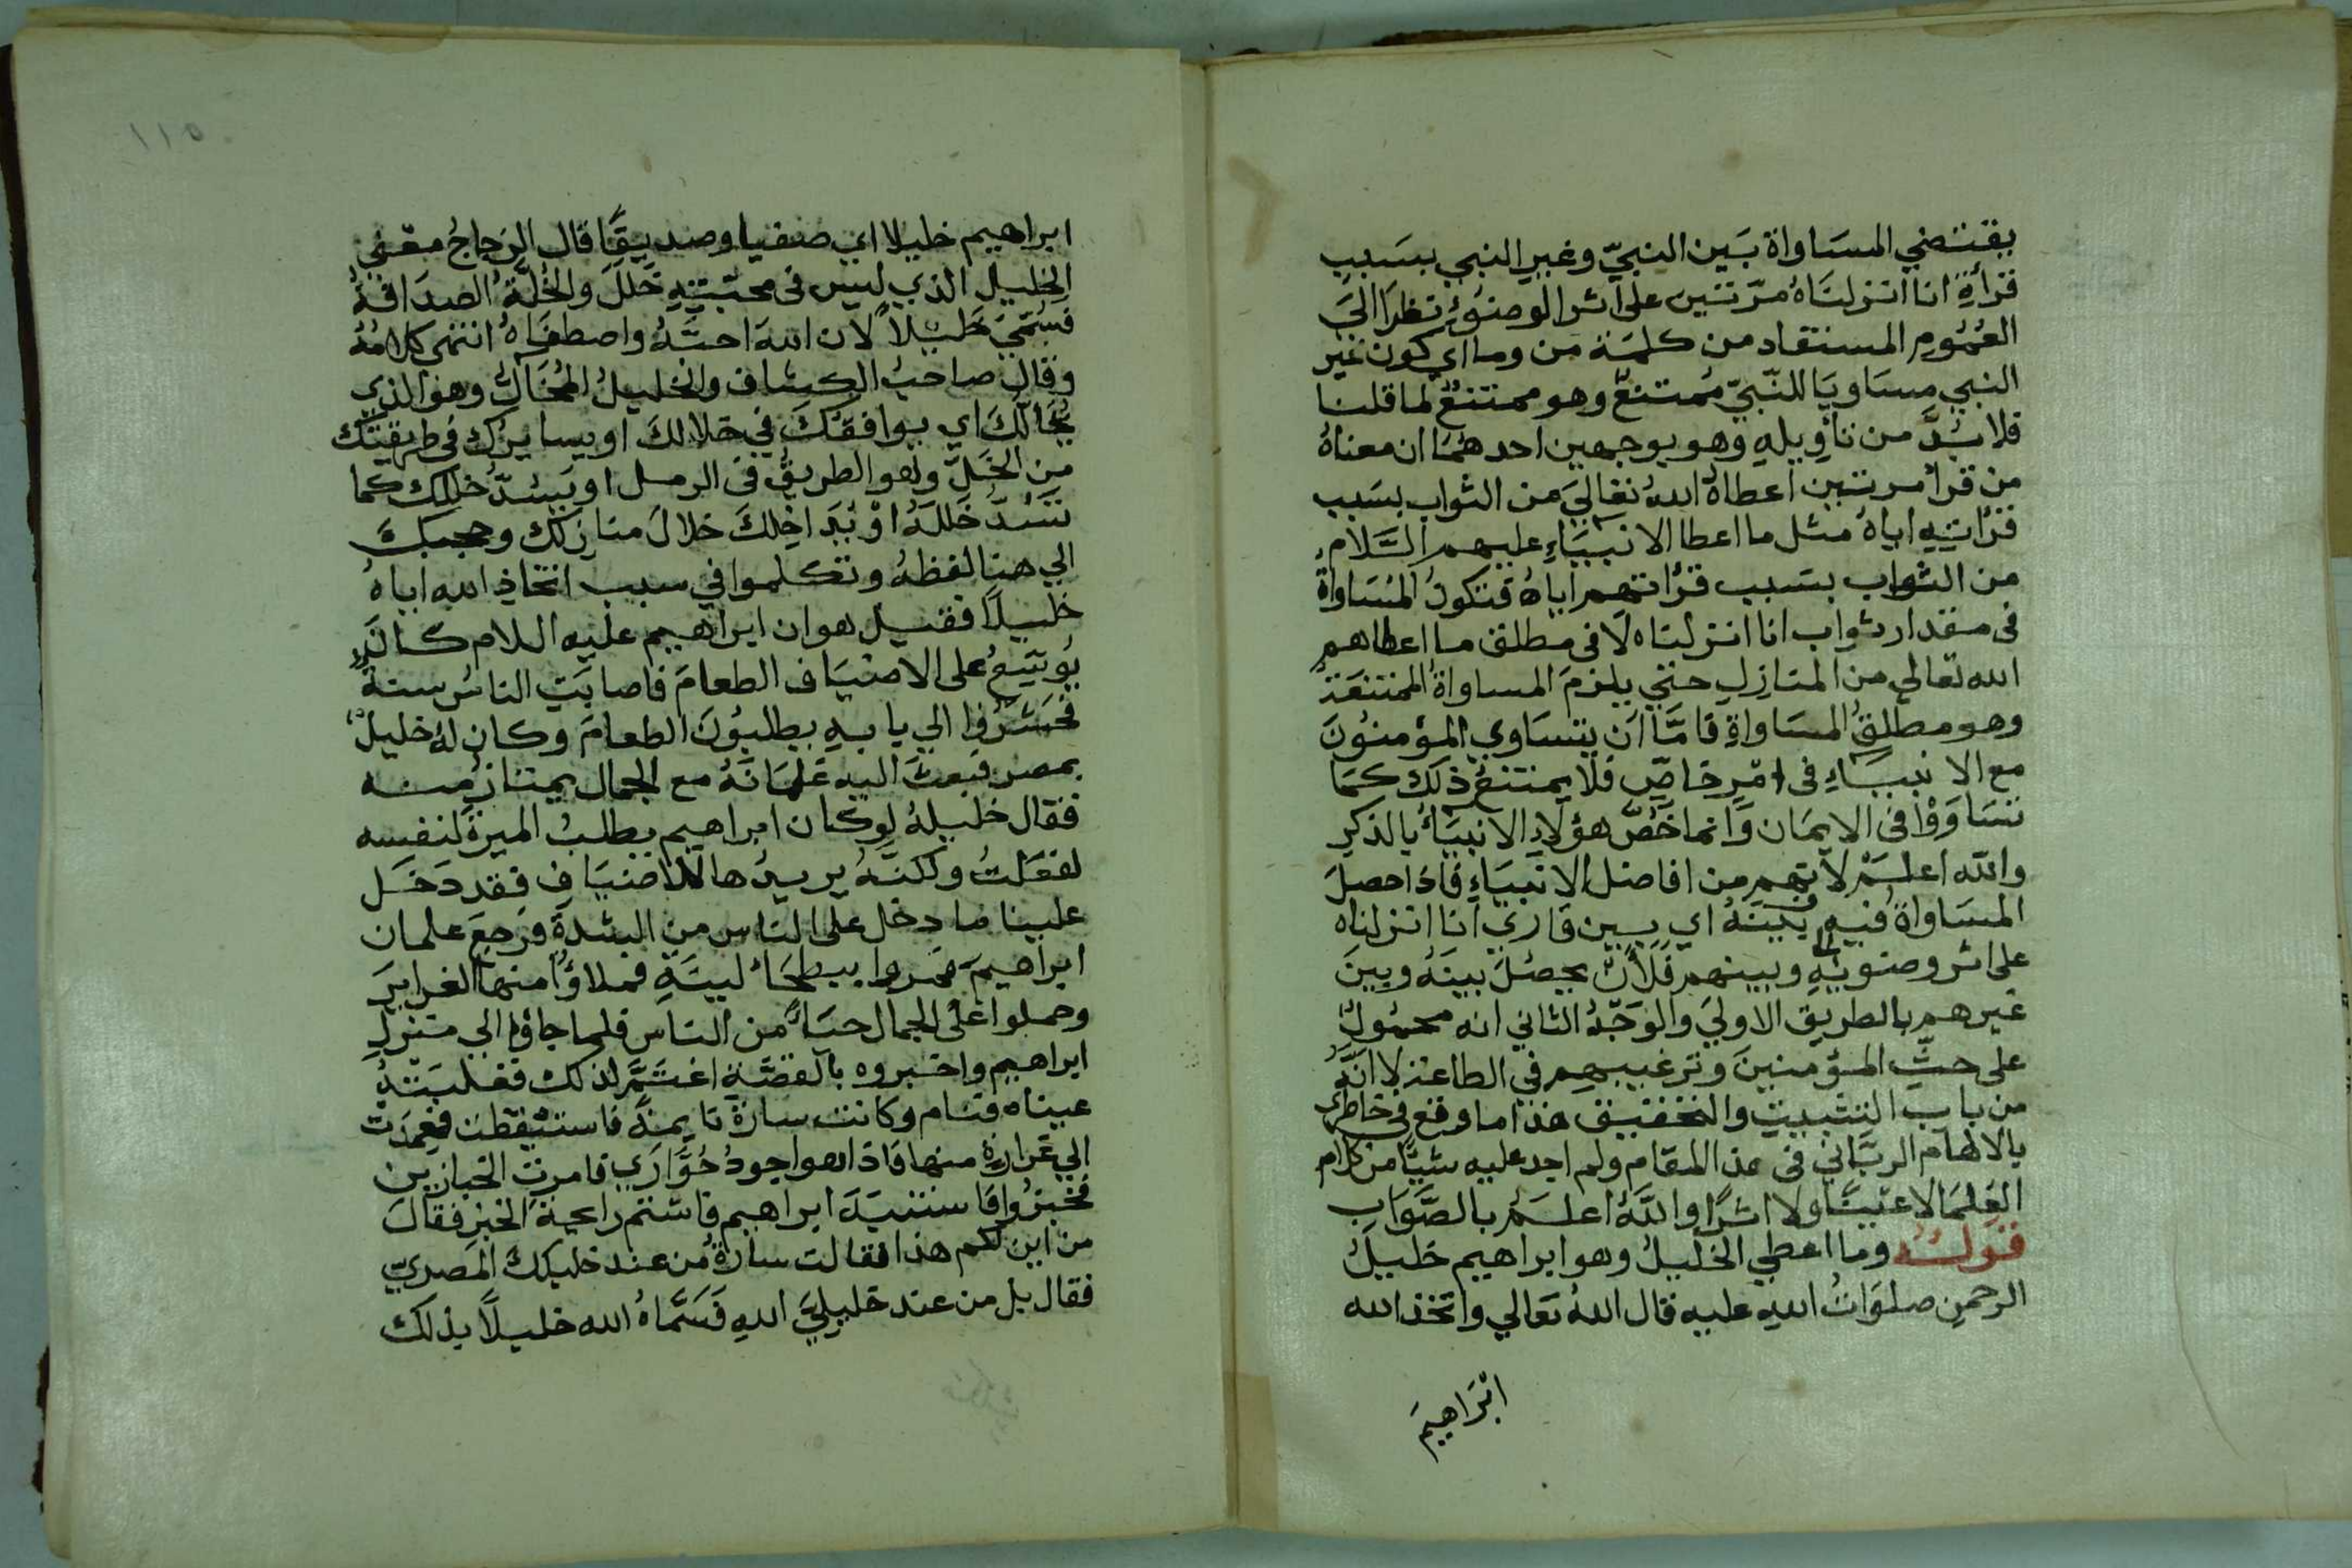 يقتضي المسَاواة بَين النبيّ وغير النبي بسَبب
قرأةِ انا انزلنَاهُ مرّتين على اثر الوضوُءِ نظرًا الىَ
العُمُومِ المستفاد من كلمَة مَن وما اي كون غير
النبي مسَاويًا للنّبيّ مُمتنعٌ وهو ممتنعٌ لما قلنا
فلا بُدَّ من تأويلهِ وهو بوجهين احدهُمَا ان معناهُ
مَن قرأ مرتين اعطاهُ اللهُ تعَاليَ من الثواب بسَبب
قرُاتِهِ اياهُ مثل ما اعطا الانبيَاءِ عليهم السَّلام
من الثواب بسَبب قرُاتهم اياهُ فتكونُ المُسَاواةُ
فى مقدار ثواب انا انزلناه لَا فى مطلق ما اعطاهم
الله تعالي من المنازِلِ حتي يلزمَ المساواة الممتنعَة
وهو مطلقُ المسَاواةِ فامَّا اَن يتسَاوي المؤمنوُنَ
مع الانبيَاءِ فى امْرٍ خاصٍّ فلا يمتنعُ ذلك كمَا
تسَاوَوْا فى الايمَان وَانما خَصَّ هؤلاءِ الانبيَأُ بالذكرِ
والله اعلَمْ لانهم من افاضل الانبيَاءِ فاذا حصلَ
المسَاواةُ فيهِ بينَهُ اي بين قاري انا انزلناه
على اثر وضوئِهِ وبينهم فَلَأَنْ يحصُلَ بينَهُ وبينَ
غيرهم بالطريق الاوليَ والوَجْهُ الثاني انه محمُولٌ
على حثِّ المؤمنينَ وترغيبهِم في الطاعة لا انَّهُ
من باب التثبيت والتحقيق هذا ما وقع في خاطرى
بالالهام الربَّاني فى هذا المقام ولم اجد عليه شيًا من كلام
العُلمَا لا عَينًا ولا اثرًا واللهُ اعلَمُ بالصَّوَاب
قولُهُ وما اعطي الخليلُ وهو ابراهيم خليلُ
الرحمنِ صلوَاتُ اللهِ عليه قال اللهُ تعَالي واتخذ الله
ابْرَاهِيمَ
١١٥
ابراهيم خليلا اي صفيا وصديقًا قال الزجاجُ معنى
الخليل الذي ليس فى محبّتِهِ خَلَلٌ والخُلَّةُ الصدَاقةُ
فسُمّيَ خَليلاً لان اللهَ احبَّهُ واصطفاهُ انتهى كلامُهُ
وقال صاحبُ الكشاف والخليلُ المُخَالُّ وهو الذي
يُخالُّكَ اي يوافقُكَ في خلالكَ او يسايرُك فى طريقتك
مِن الخَلِّ وهو الطريقُ فى الرمل او يَسُدُّ خللك كما
تسُدُّ خَلَلَهُ اوْ يُدَاخِلكَ خلالَ منازلك وحجبكَ
الي هنا لفظهُ وتكلموا في سبب اتخاذِ الله اياهُ
خليلاً فقيل هو ان ابراهيم عليه اللام كانَ
يُوسّعُ على الاضيَاف الطعامَ فاصابَتِ الناسَ سنةٌ
فحَشَرُوا الي بابهِ يطلبُونَ الطعامَ وكان لهُ خليلٌ
بمصر فبعثَ اليهِ غلمَانَهُ مع الجمال يمتارُ منه
فقال خليلهُ لو كان ابراهيم يطلبُ الميرةَ لنفسه
لفعَلتُ ولكنَّه يريدُها للاضيَاف فقد دَخَل
علينا ما دخل على الناس من الشدةِ فرَجعَ غلمان
ابراهيمَ فمروا ببطحَاءَ ليّنَةٍ فملاؤُا منها الغرايرَ
وحملوا على الجمال حيَاءً من الناس فلما جاؤا الي منزلِ
ابراهيم واخبروه بالقصَّةِ اغتَمَّ لذلك فغلبَتْهُ
عيناه فنام وكانت سارَةُ نايمةً فاستيقظت فعمدَت
الي غرارةٍ منها فاذا هو اجودُ حُوَّارَي فامرتِ الخبازين
فخبزُوا فاستنبَهَ ابراهيم فاشتم رايحةَ الخبزِ فقال
من اين لكم هذا فقالت سارةُ من عند خليلكَ المصريّ
فقال بل من عند خليليَ اللهِ فَسَمَّاهُ الله خليلاً بذلك